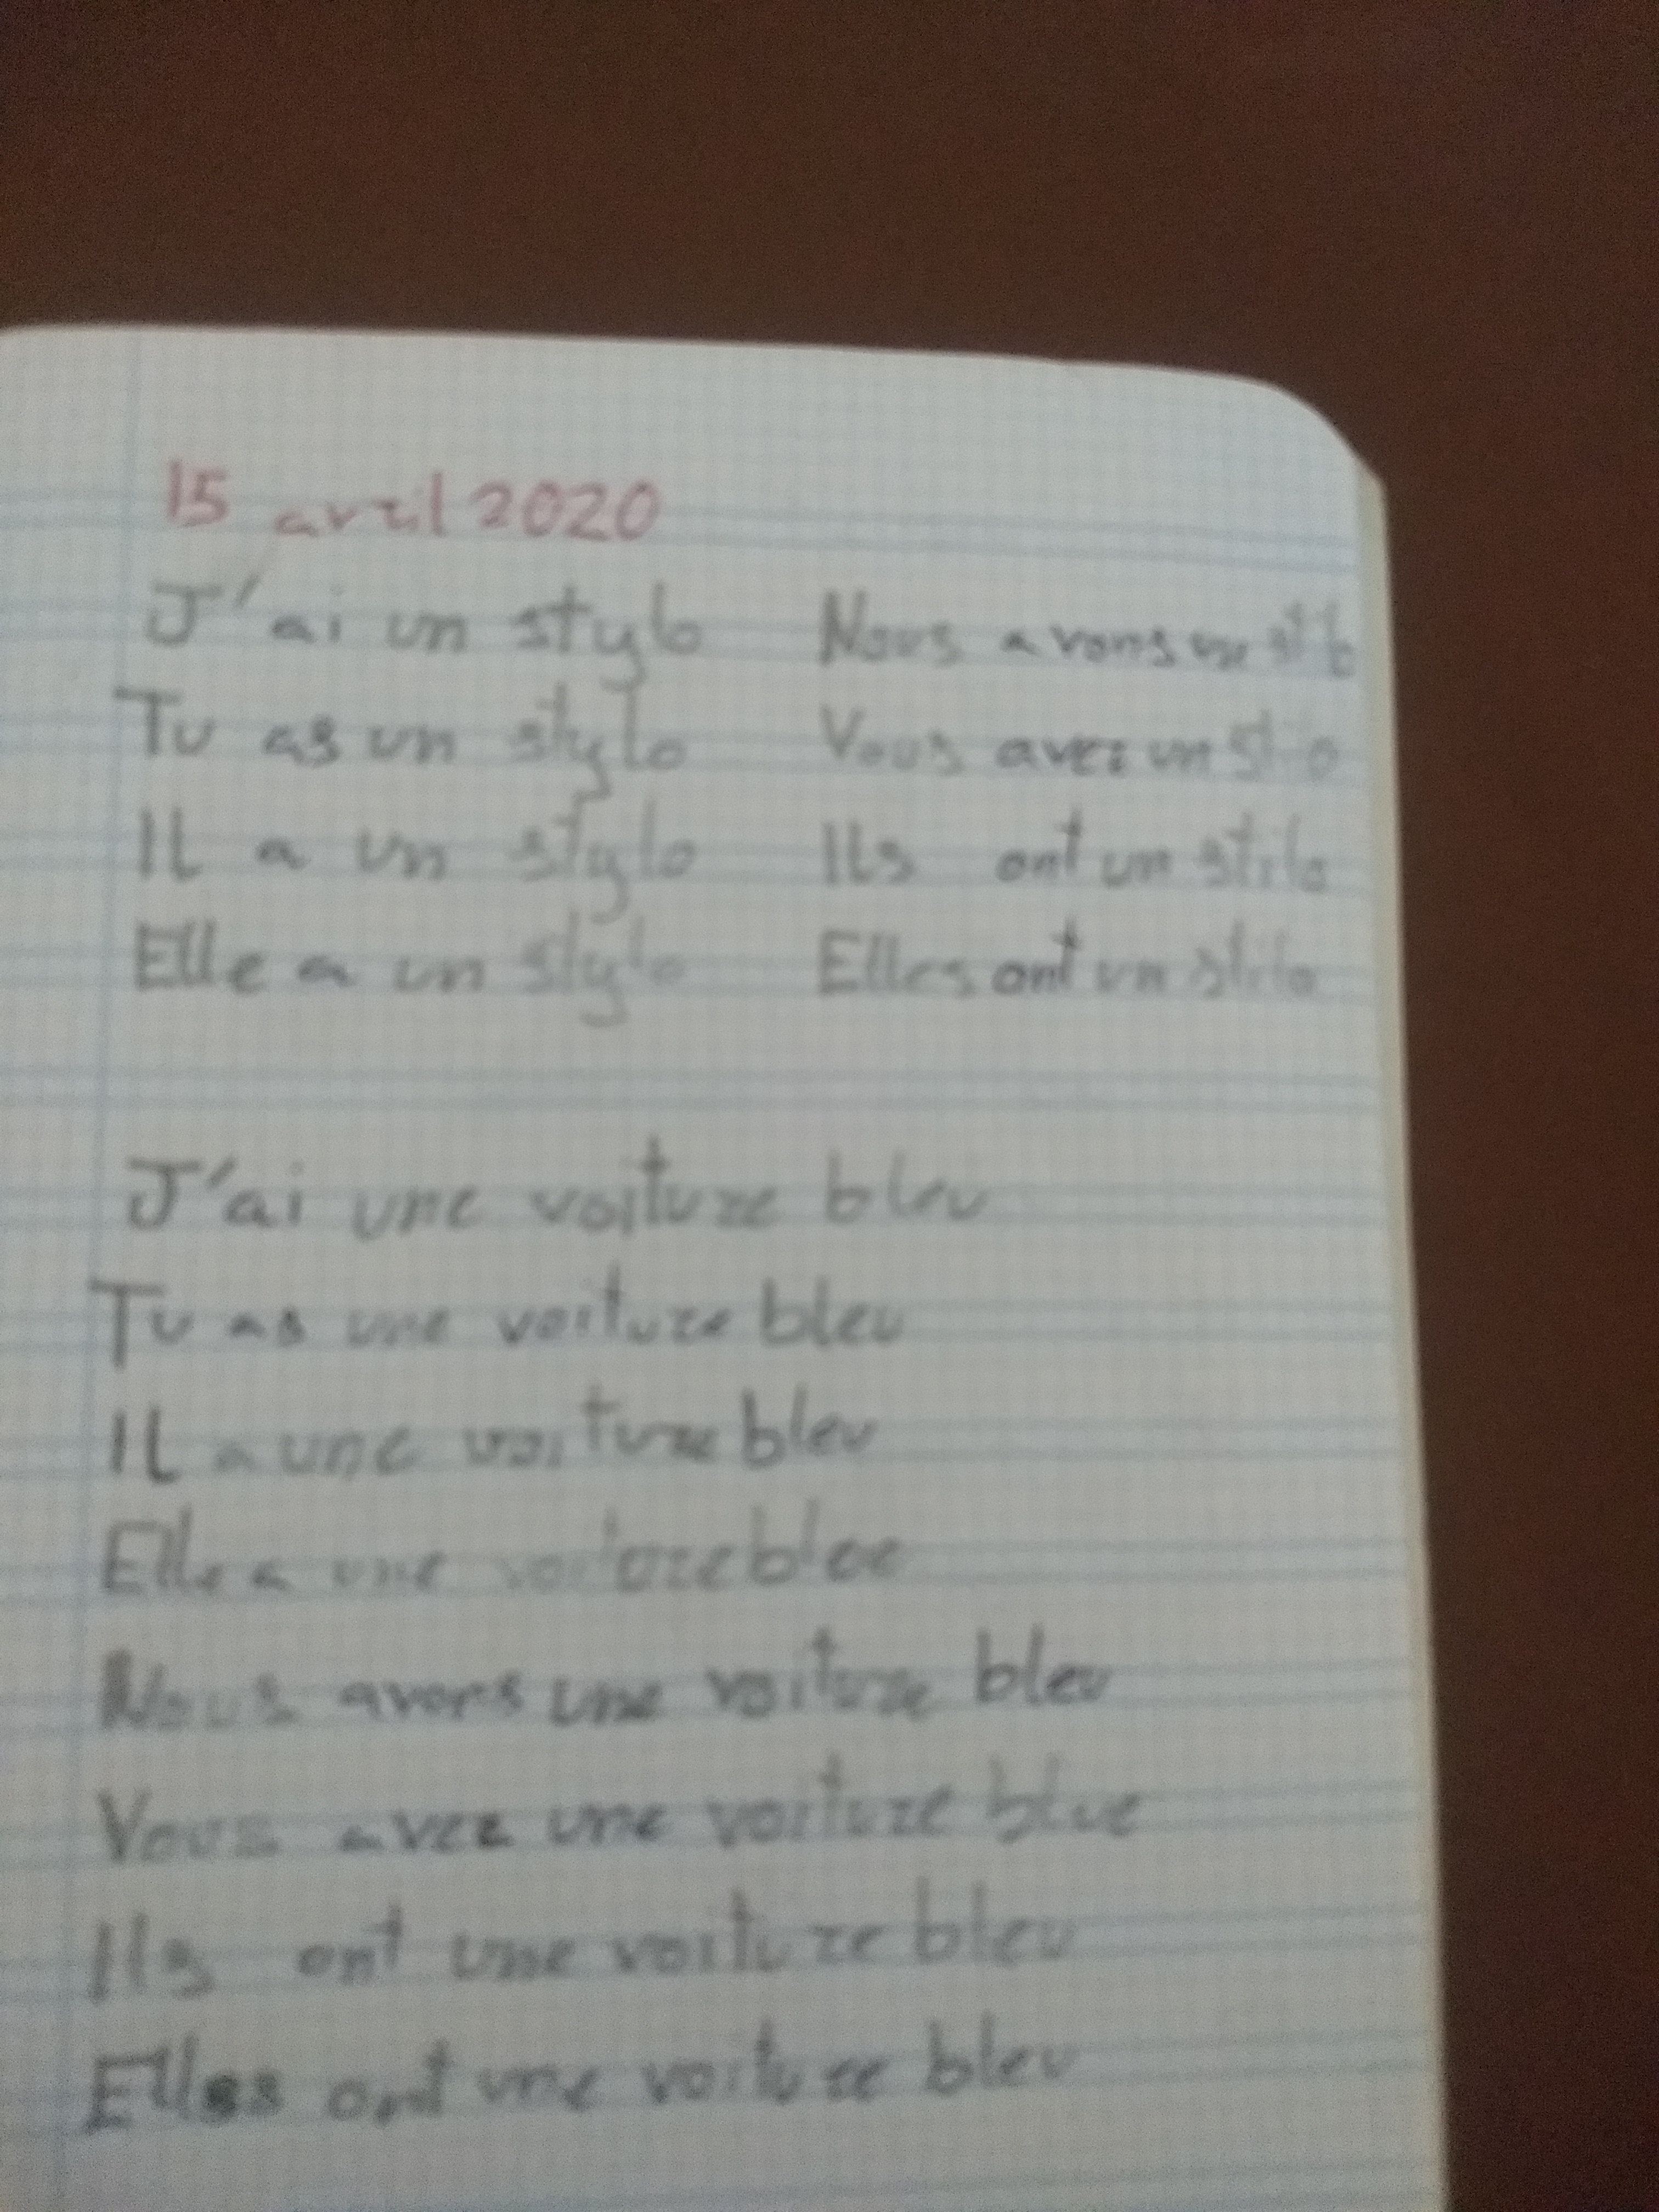 15 avril 2020
J'ai un stylo Nous avons un
Tu as un stylo Vous avez un
Il a un stylo Ils ont un stilo
Elle a un stylo Elles ont un stilo
J'ai une voiture bleu
Tu as une voiture bleu
Il a une voiture bleu
Elle a une
Nous avons une voiture bleu
Vous avez une voiture blue
Ils ont une voiture bleu
Elles ont une voiture bleu